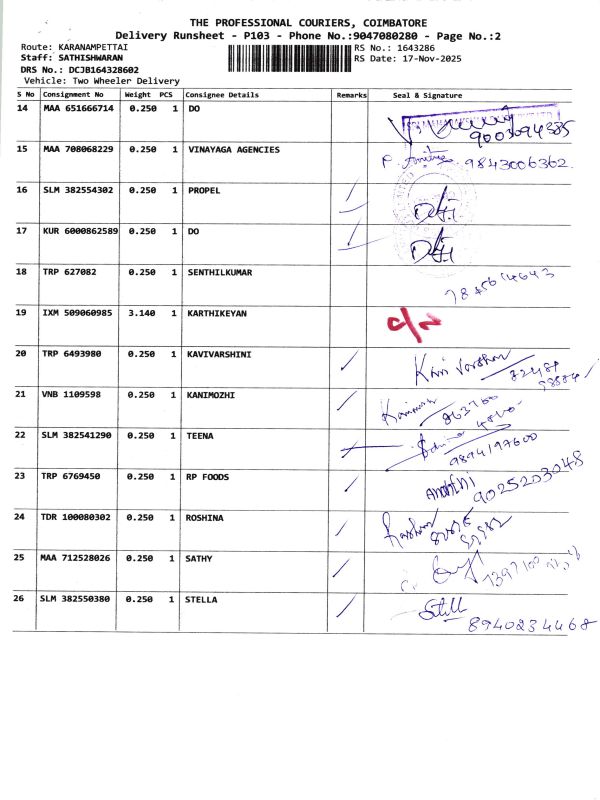 THE PROFESSIONAL COURIERS, COIMBATORE
Delivery Runsheet - P103 - Phone No.:9047080280 - Page No.:2
Route: KARANAMPETTAI RS No.: 1643286
Staff: SATHISHWARAN RS Date: 17-Nov-2025
DRS No.: DCJB164328602
Vehicle: Two Wheeler Delivery
S No Consignment No Weight PCS Consignee Details Remarks Seal & Signature
14 MAA 651666714 0.250 1 DO 9003094385
15 MAA 708068229 0.250 1 VINAYAGA AGENCIES 9843006362
16 SLM 382554302 0.250 1 PROPEL
17 KUR 6000862589 0.250 1 DO
18 TRP 627082 0.250 1 SENTHILKUMAR
19 IXM 509060985 3.140 1 KARTHIKEYAN C/N
20 TRP 6493980 0.250 1 KAVIVARSHINI
21 VNB 1109598 0.250 1 KANIMOZHI
22 SLM 382541290 0.250 1 TEENA 9894197600
23 TRP 6769450 0.250 1 RP FOODS 9025203048
24 TDR 100080302 0.250 1 ROSHINA
25 MAA 712528026 0.250 1 SATHY
26 SLM 382550380 0.250 1 STELLA Stell
8940234468